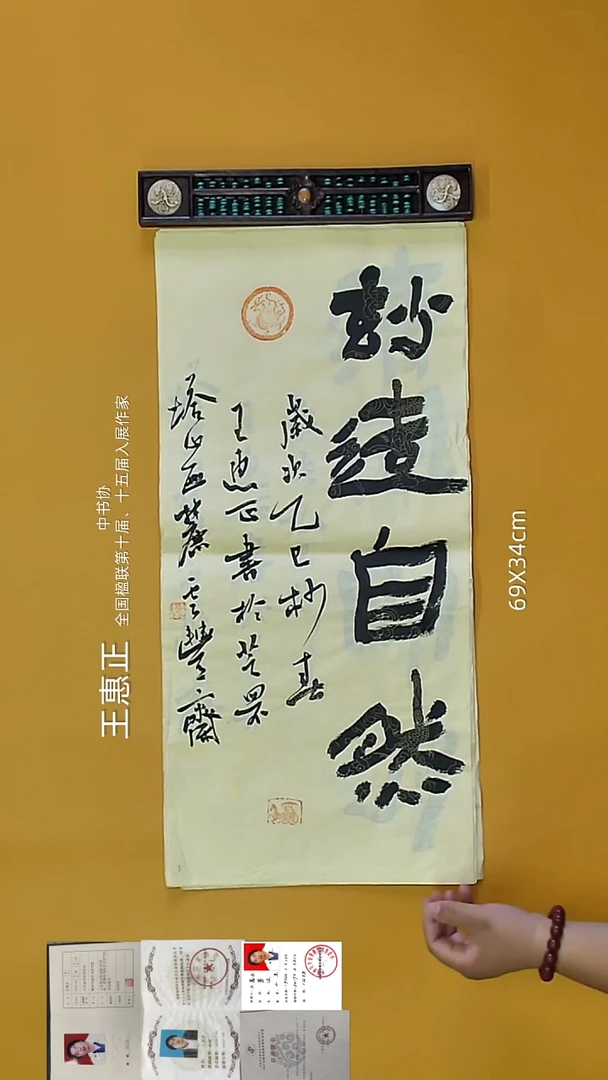 玅造自然
歲次乙巳杪春
王惠正書於芝罘
塔山西麓云豐齋
王惠正
中书协
全国楹联第十届、十五届入展作家
69X34cm